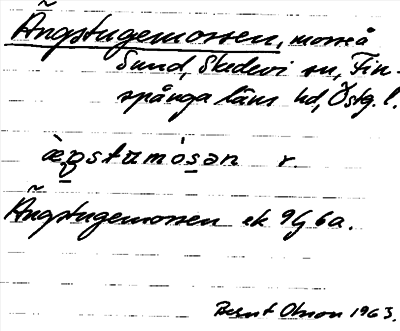 Ängstugemossen, mosse å
Sund, Skedevi sn, Fin-
spånga läns hd, Östg. l.
r.
Ängstugemossen ek 9G 6a.
Bernt Olsson 1963.